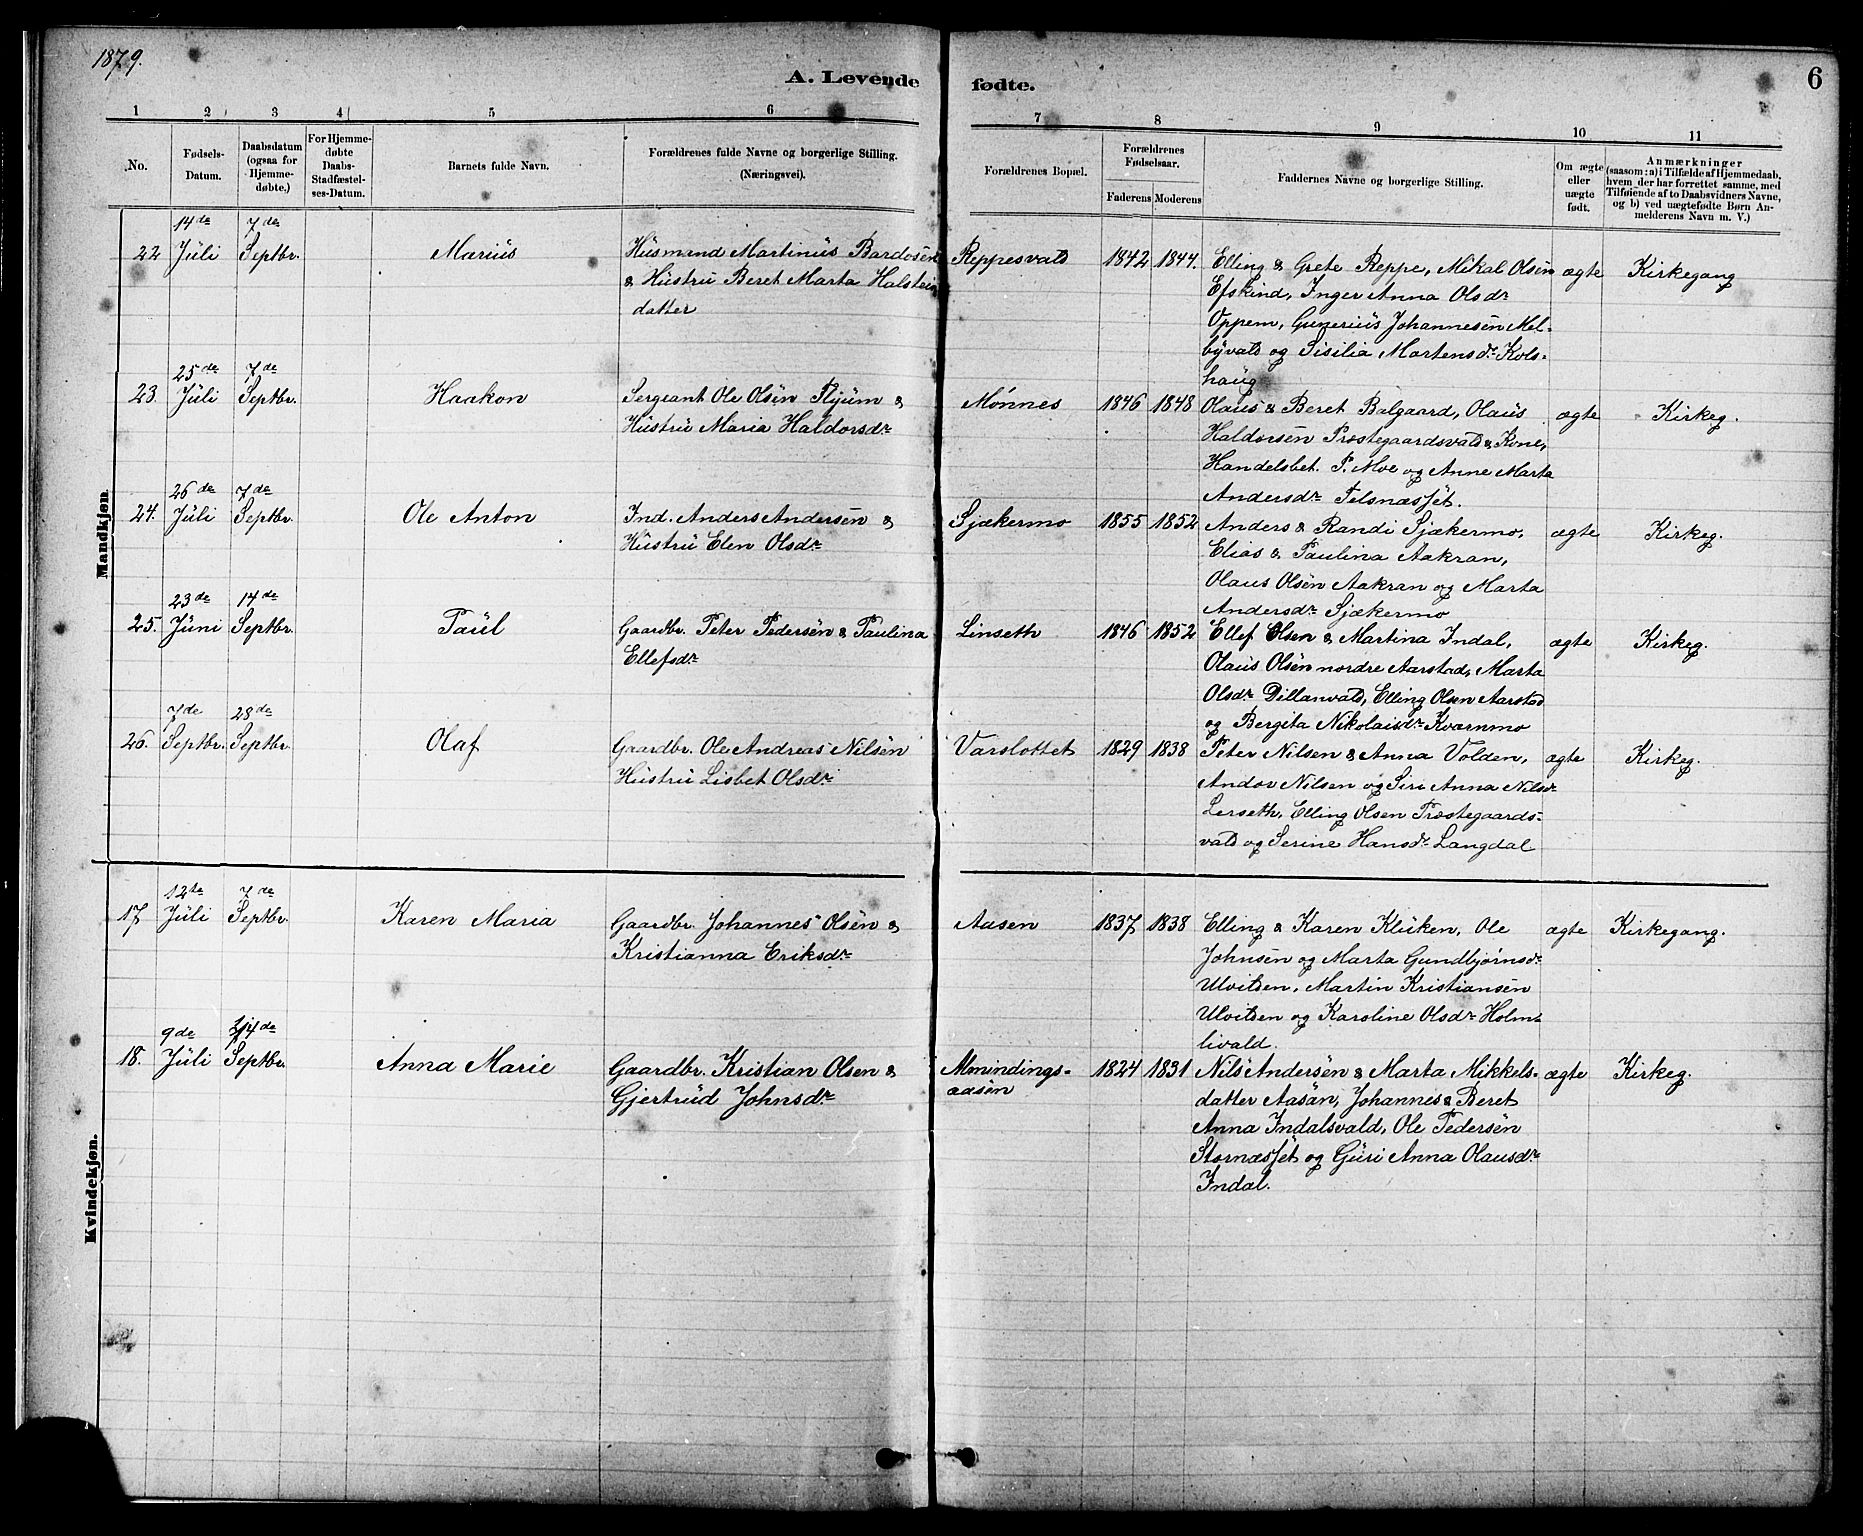 1879.
A. Levende fødte.
6
1 2 3 4 5 6 7 8 9 10 11
No.
Fødsels-
Datum.
Daabsdatum
(ogsaa for
Hjemme-
døbte.)
For Hjemme-
døbte
Daabs-
Stadfæstel-
ses-Datum.
Barnets fulde Navn.
Forældrenes fulde Navne og borgerlige Stilling.
(Næringsvei).
Forældrenes Bopæl.
Forældrenes
Fødselsaar.
Faderens Moderens
Faddernes Navne og borgerlige Stilling.
Om ægte
eller
uægte
født.
Anmærkninger
(saasom: a) i Tilfælde af Hjemmedaab,
hvem der har forrettet samme, med
Tilføiende af to Daabsvidners Navne,
og b) ved uægtefødte Børn An-
melderens Navn m. V.)
Mandkjøn.
14de 7de
22 Juli Septbr. Marius Husmand Martinus Bardosen Reppesvald 1842 1844. Elling & Grete Reppe, Mikal Olsen ægte Kirkegang
& Hustru Beret Marta Halstein Efskind, Inger Anna Olsdr
datter Oppem, Gunerius Johannesen Mel-
byvald og Sisilia Martensdr Kols-
haug
25de 7de
23. Juli Septbr. Haakon Sergeant Ole Olsen Flyum & Mønnes 1846 1848 Olaus & Beret Balgaard, Olaus ægte Kirkeg.
Hustru Maria Haldorsdr Haldorsen Præstegaardsvald & Kone,
Handelsbet. P. Moe og Anne Marta
Andersdr Telsnæsset.
26de 7de
24. Juli Septbr. Ole Anton Ind. Anders Andersen & Sjækermo 1855 1852 Anders & Randi Sjækermo, ægte Kirkeg.
Hustru Elen Olsdr Elias & Paulina Aakran,
Olaus Olsen Aakran og Marta
Andersdr Sjækermo
23de 14de
25. Juni Septbr. Paul Gaardbr. Peter Pedersen & Paulina Linseth 1846 1852 Ellef Olsen & Martina Indal, ægte Kirkeg.
Ellefsdr Olaus Olsen nordre Aarstad, Marta
Olsdr Dillanvald, Elling Olsen Aarstad
og Bergita Nikolaisdr Kvarnmo
7de 28de
26. Septbr. Septbr. Olaf Gaardbr. Ole Andreas Nilsen Varslottet 1829 1838 Peter Nilsen & Anna Volden, ægte Kirkeg.
Hustru Lisbet Olsdr Andor Nilsen og Siri Anna Nilsdr
Lerseth, Elling Olsen Præstegaards-
vald og Serine Hansdr Langdal
Kvindekjøn.
12te 7de
17 Juli Septbr. Karen Maria Gaardbr. Johannes Olsen & Aasen 1837 1838 Elling & Karen Kluken, Ole ægte Kirkegang.
Kristianna Eriksdr Johnsen og Marta Gundbjørnsdr
Ulvilden, Martin Kristiansen
Ulvilden og Karoline Olsdr Holm-
livald.
9de 14de
18. Juli Septbr. Anna Marie Gaardbr. Kristian Olsen & Almindings- 1824 1831 Nils Andersen & Marta Mikkels- ægte Kirkeg.
Gjertrud Johnsdr aasen datter Aasan, Johannes & Beret
Anna Indalsvald, Ole Pedersen
Stornæsset og Guri Anna Olausdr
Indal.